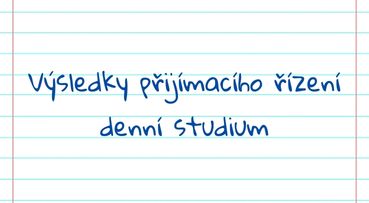 Výsledky přijímacího řízení
denní studium